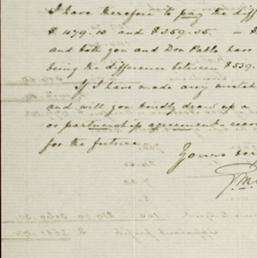 I have therefore to pay the diff
$ 1079.10 and $ 259.55. —
and both you and Don Pablo have
being the difference between $539.
If I have made any mistak
and will you kindly draw up a
or partnership agreement
for the future.
Yours